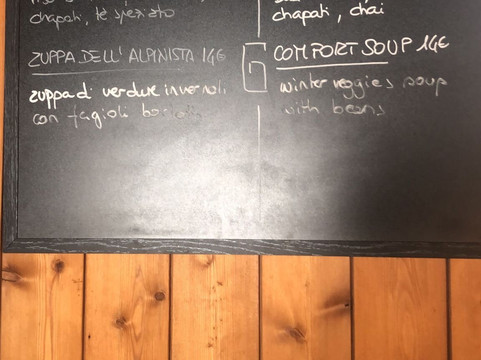 chapati, tè speziato
ZUPPA DELL' ALPINISTA 14€
zuppa di verdure invernali
con fagioli
chapati, chai
COMFORT SOUP 14€
winter veggies soup
with beans